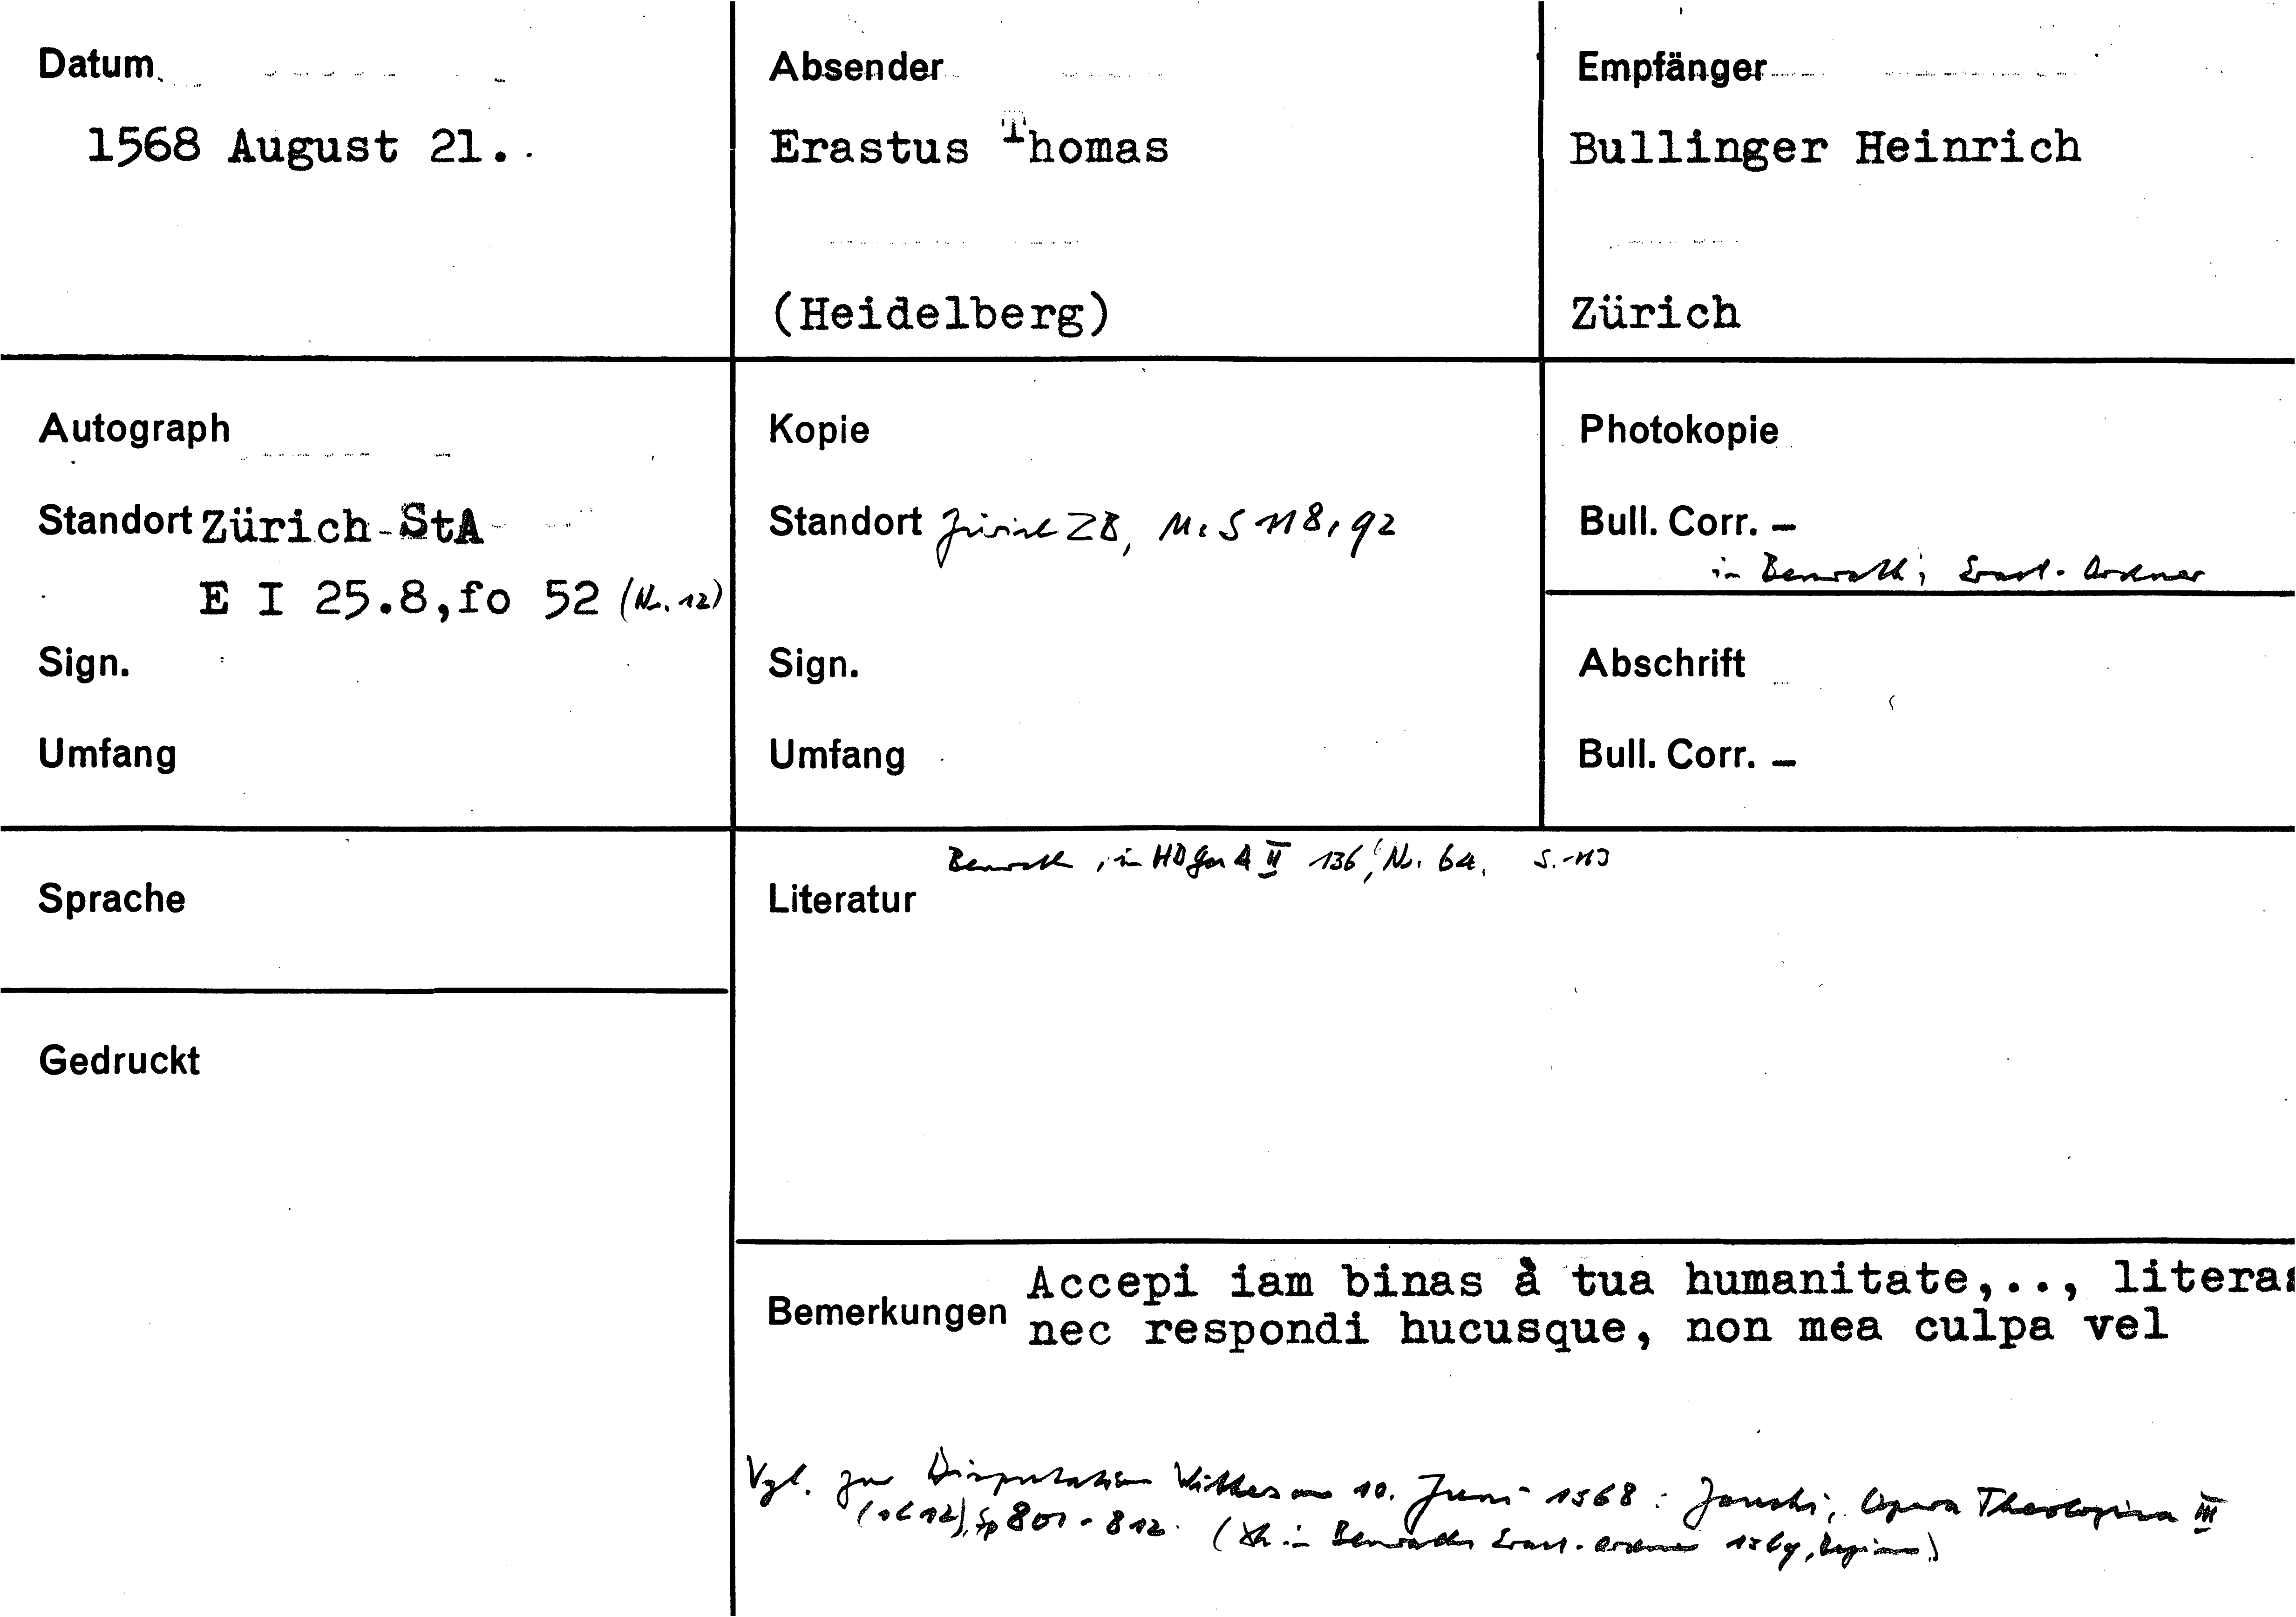 Datum
1568 August 21.
Absender
Erastus Thomas
(Heidelberg)
Empfänger
Bullinger Heinrich
Zürich
Autograph
Standort Zürich StA
E I 25.8,fo 52 (Nr. 12)
Sign.
Umfang
Kopie
Standort Zürich ZB, Ms S 118, 92
Sign.
Umfang
Photokopie
Bull. Corr. –
in Benrath, Erast-Ordner
Abschrift
Bull. Corr. –
Sprache
Gedruckt
Benrath, in II 136, Nr. 64,
Literatur
Bemerkungen
Accepi iam binas à tua humanitate,.., litera
nec respondi hucusque, non mea culpa vel
Vgl. zur Disputation 10. Juni 1568: Opera Theologica III
Sp 801-812. (in Benraths Erast-Ordner